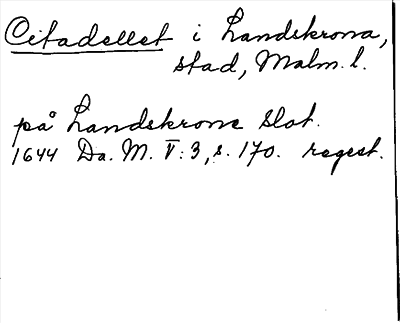 Citadellet i Landskrona,
stad, Malm. l.
på Landskrone Slot.
1644 Da. M. V: 3, s. 170. regest.